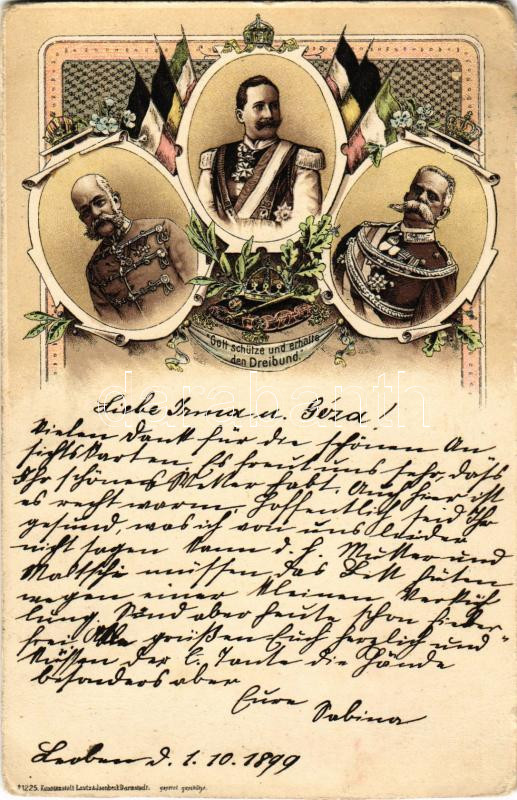 "Gott schütze und erhalte
den Dreibund."
Liebe Irma u. Géza!
Vielen Dank für die schönen An
sichtskarten. Es freut uns sehr, daß
Ihr schönes Wetter habt. Auch hier ist
es recht warm. Hoffentlich seid Ihr
gesund, was ich von uns leider
nicht sagen kann d. h. Mutter und
müssen das Bett hüten
wegen einer kleinen Verküh
lung. Sind aber heute schon fieber
frei. Alle grüßen Euch herzlich und
küssen der l. Tante die Hände
besonders aber
Eure
Sabina
Leoben d. 1.10.1899
darabanth
†1225. Kunstanstalt Lautz & Isenbeck Darmstadt. gesetzl. geschützt.